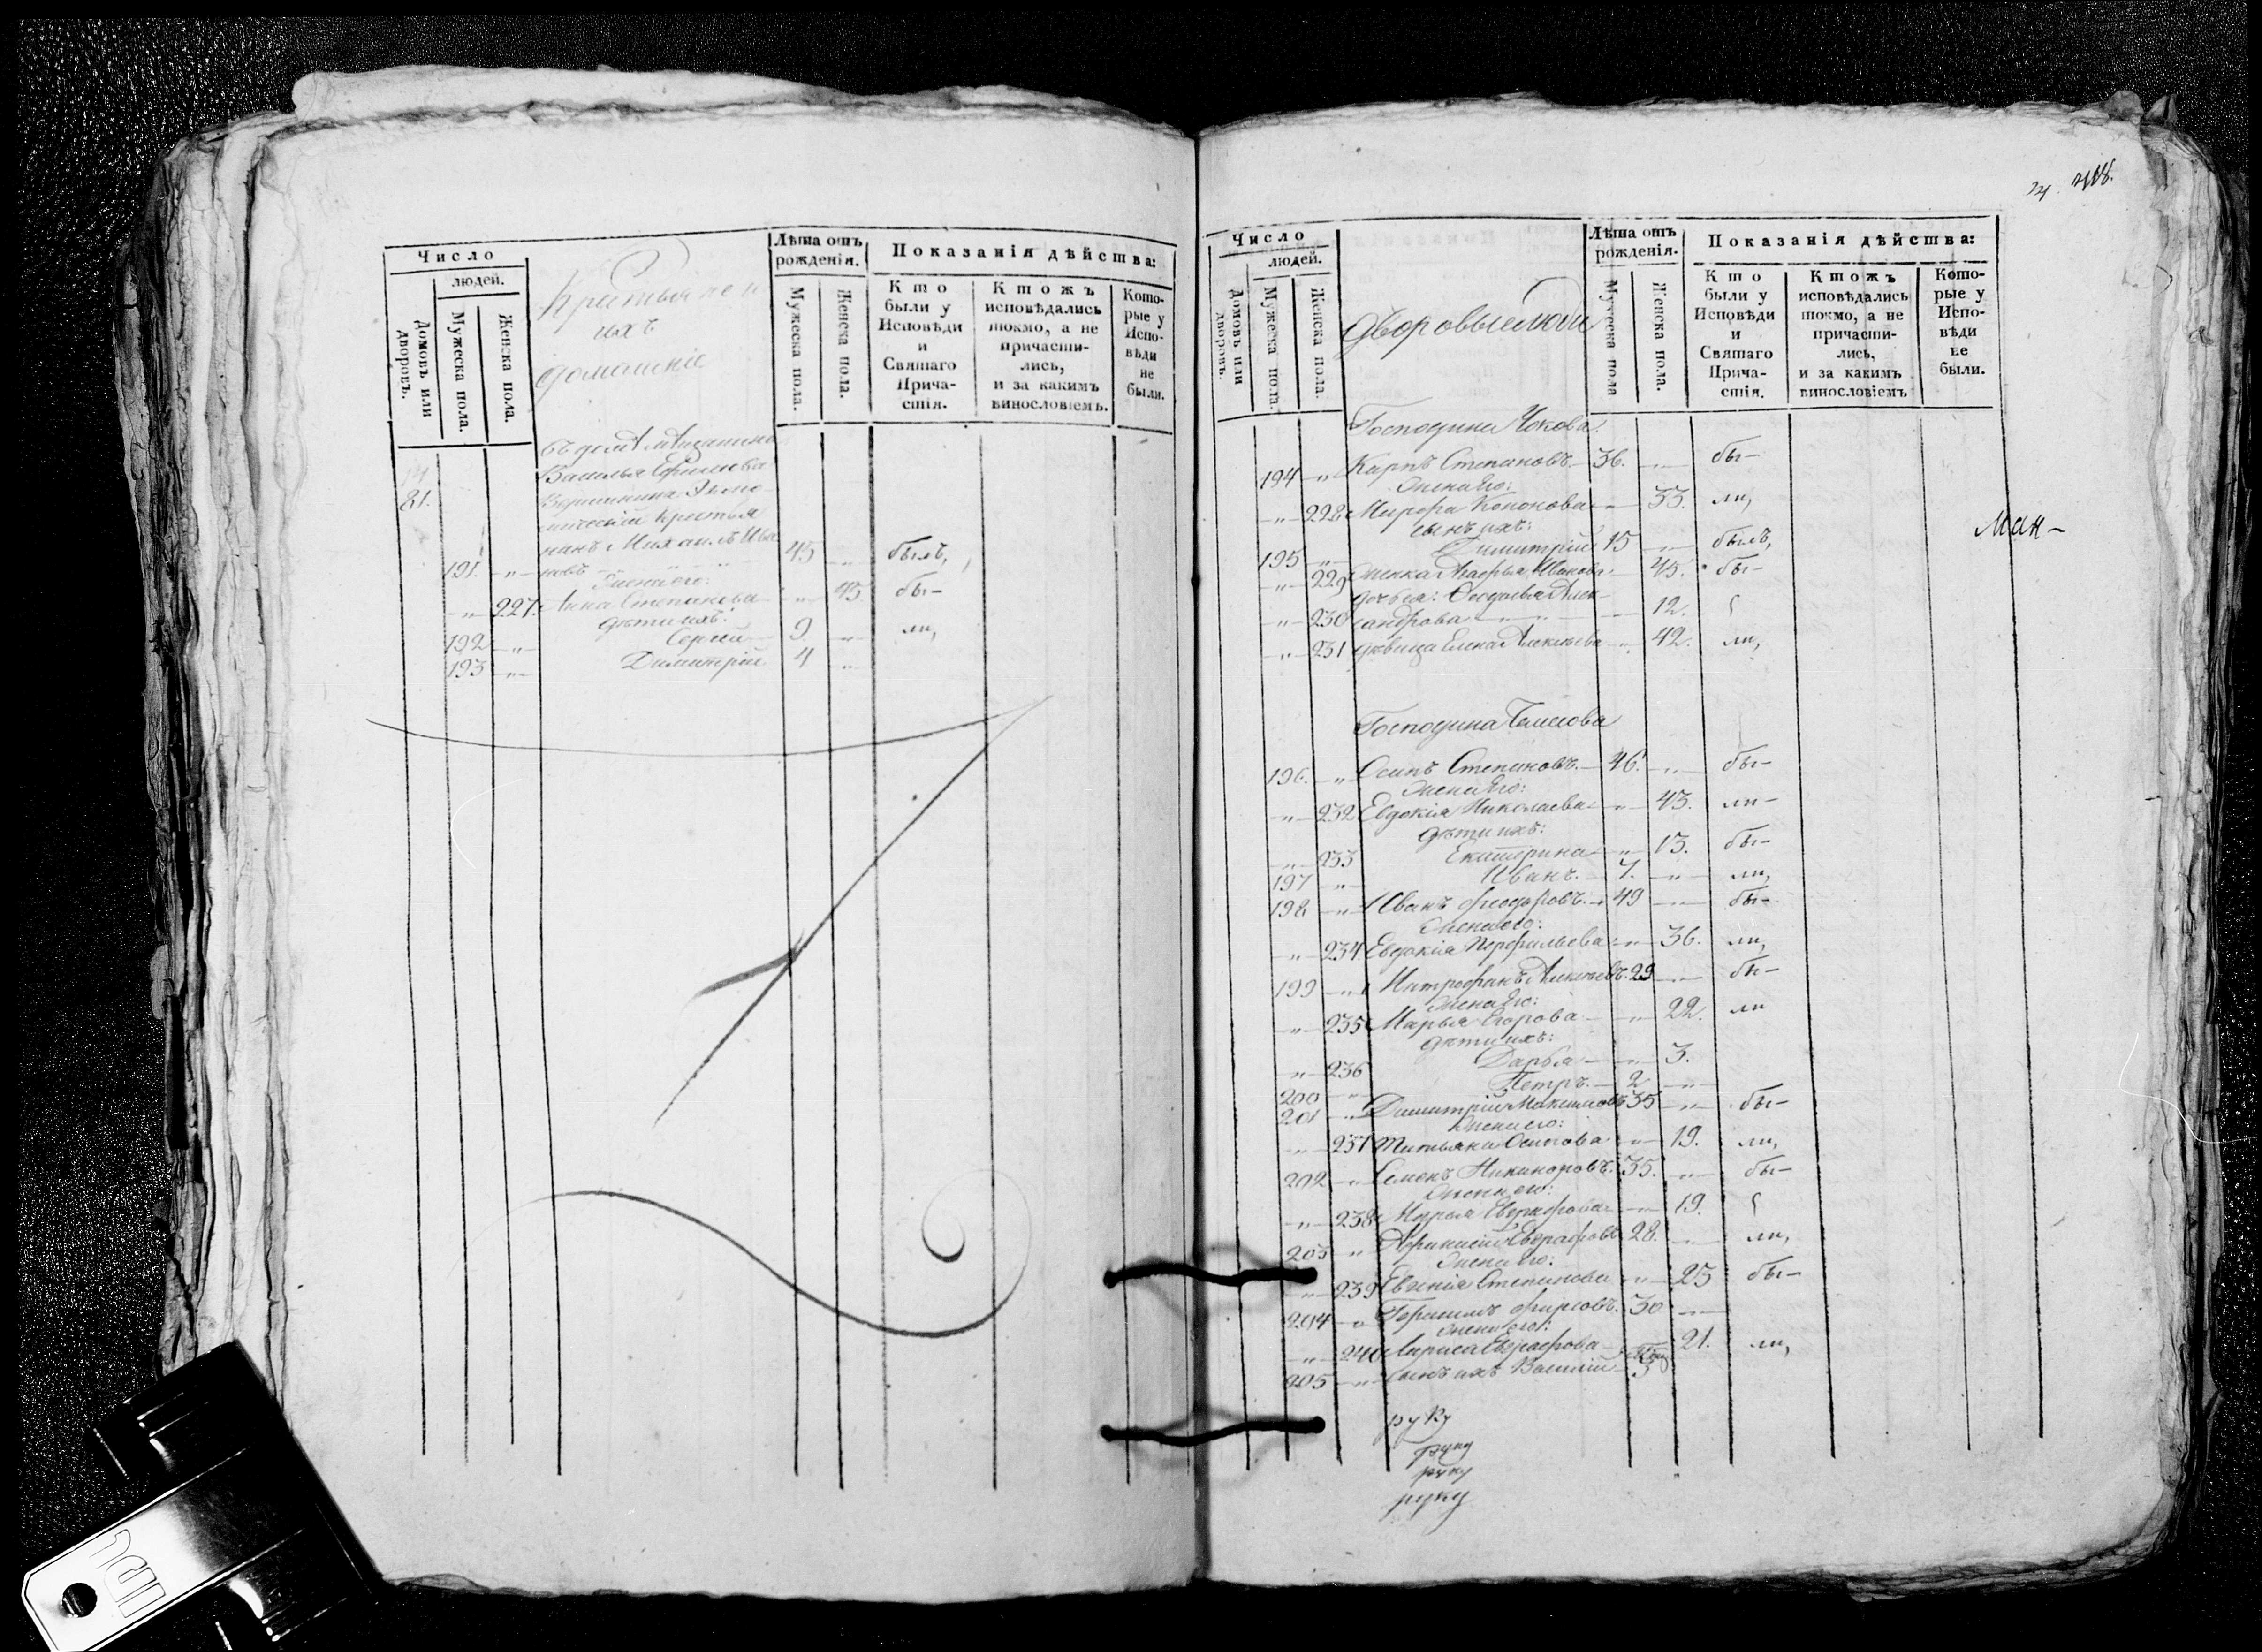 Число
людей.
Домовъ или дворовъ.
Мужеска пола.
Женска пола.
Крестьяне и
ихъ
домашніе
Лѣта отъ рожденія.
Мужеска пола.
Женска пола.
Показанія дѣйства:
Кто были у Исповѣди и Святаго Прича-стія.
Ктожъ исповѣдались токмо, а не причасти-лись, и за какимъ винословіемъ.
Кото-рые у Испо-вѣди не были.
Въ домѣ мѣщанина
Василья Ефимова
81.
нинъ Михаилъ Ива
191. новъ 45 былъ,
Жена его:
227. Анна Степанова 45 бы-
дѣти ихъ:
192 Сергѣй 9 ли,
193 Димитрій 4
Число
людей.
Домовъ или дворовъ.
Мужеска пола.
Женска пола.
Дворовые люди
Лѣта отъ рожденія.
Мужеска пола
Женска пола.
Показанія дѣйства:
Кто были у Исповѣди и Святаго Прича-стія.
Ктожъ исповѣдались токмо, а не причасти-лись, и за какимъ винословіемъ
Кото-рые у Испо-вѣди не были.
Господина
194 Карпъ Степановъ 36. бы-
Жена Его:
228 Марфа Кононова 33. ли,
сынъ ихъ:
195 Димитрій 15 былъ,
229 Женка Агафья Иванова 45. бы-
дочь ея: Алек-
230 сандрова 12.
231 дѣвица Елена Алексѣева 42. ли,
Ман-
Господина
196. Осипъ Степановъ 46. бы-
Жена Его:
232 Евдокія Николаева 43. ли-
дѣти ихъ:
233 Екатерина 13. бы-
197 Иванъ 7. ли,
198 Иванъ Феодоровъ 49 бы-
Жена его:
234 Евдокія Перфильева 36. ли,
199 Митрофанъ Алексѣевъ 29 бы-
Жена Его:
235 Марья Егорова 22. ли
дѣти ихъ:
236 Дарья 3.
200 Петръ 2
201 Димитрій Максимовъ 35 бы-
Жена его:
237 Татьяна Осипова 19. ли,
202 Семенъ Никаноровъ 35. бы-
Жена его:
238 Марья Евграфова 19.
203 Афанасій Евграфовъ 28. ли,
Жена Его:
239 Евгенія Степанова 23 бы-
204 Герасимъ Фирсовъ 30
Жена его:
240 Лариса Евграфова 21. ли,
205 сынъ ихъ Василій
руку
руку
руку
руку